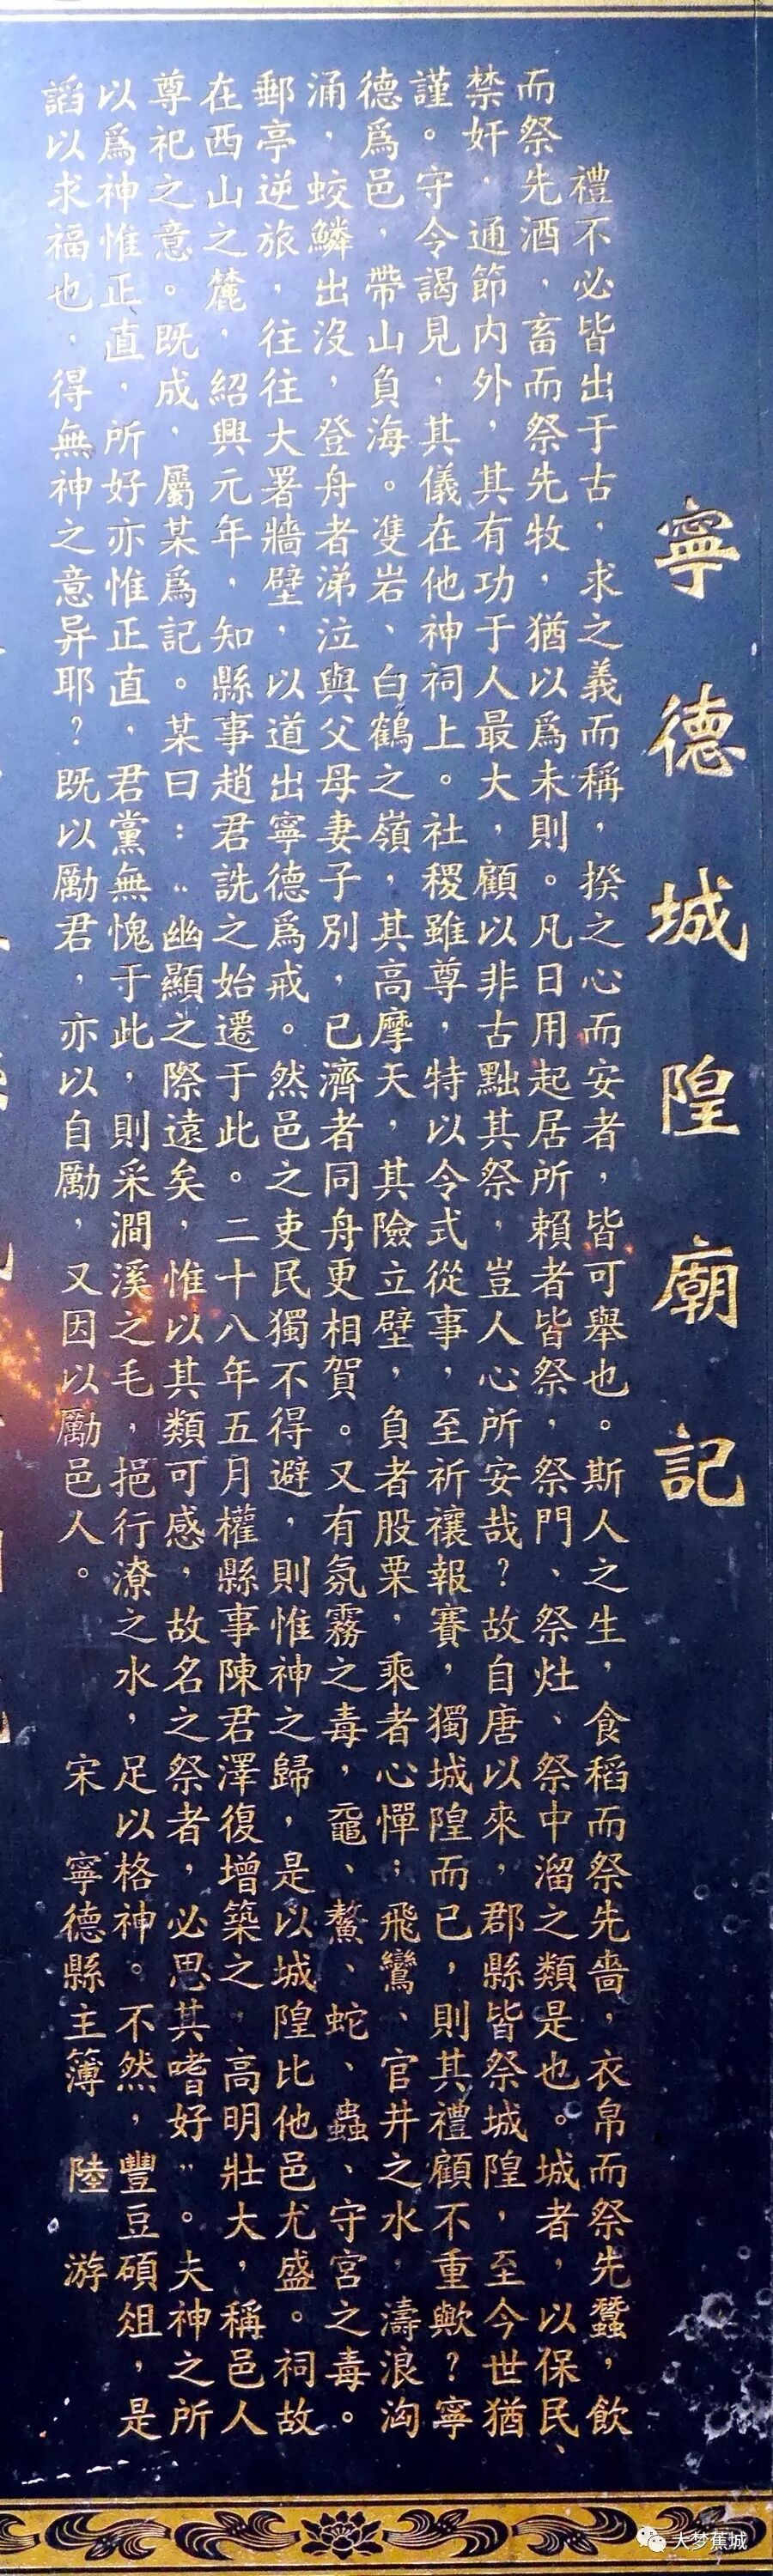 寧德城隍廟記
禮不必皆出于古，求之義而稱，揆之心而安者，皆可舉也。斯人之生，食稻而祭先嗇，衣帛而祭先蠶，飲
而祭先酒，畜而祭先牧，猶以爲未則。凡日用起居所賴者皆祭，祭門、祭灶、祭中溜之類是也。城者，以保民、
禁奸，通節内外，其有功于人最大，顧以非古黜其祭，豈人心所安哉？故自唐以來，郡縣皆祭城隍，至今世猶
謹。守令謁見，其儀在他神祠上。社稷雖尊，特以令式從事，至祈禳報賽，獨城隍而已，則其禮顧不重歟？寧
德爲邑，帶山負海。雙岩、白鶴之嶺，其高摩天，其險立壁，負者股栗，乘者心憚；飛鸞、官井之水，濤浪洶
涌，蛟鱗出沒，登舟者涕泣與父母妻子別，已濟者同舟更相賀。又有氛霧之毒，黿、鰲、蛇、蟲、守宮之毒。
郵亭逆旅，往往大署牆壁，以道出寧德爲戒。然邑之吏民獨不得避，則惟神之歸，是以城隍比他邑尤盛。祠故
在西山之麓，紹興元年，知縣事趙君詵之始遷于此。二十八年五月權縣事陳君澤復增築之，高明壯大，稱邑人
尊祀之意。既成，屬某爲記。某曰：“幽顯之際遠矣，惟以其類可感，故名之祭者，必思其嗜好”。夫神之所
以爲神惟正直，所好亦惟正直，君黨無愧于此，則采澗溪之毛，挹行潦之水，足以格神。不然，豐豆碩俎，是
諂以求福也，得無神之意异耶？既以勵君，亦以自勵，又因以勵邑人。
宋 寧德縣主簿 陸 游
大梦蕉城